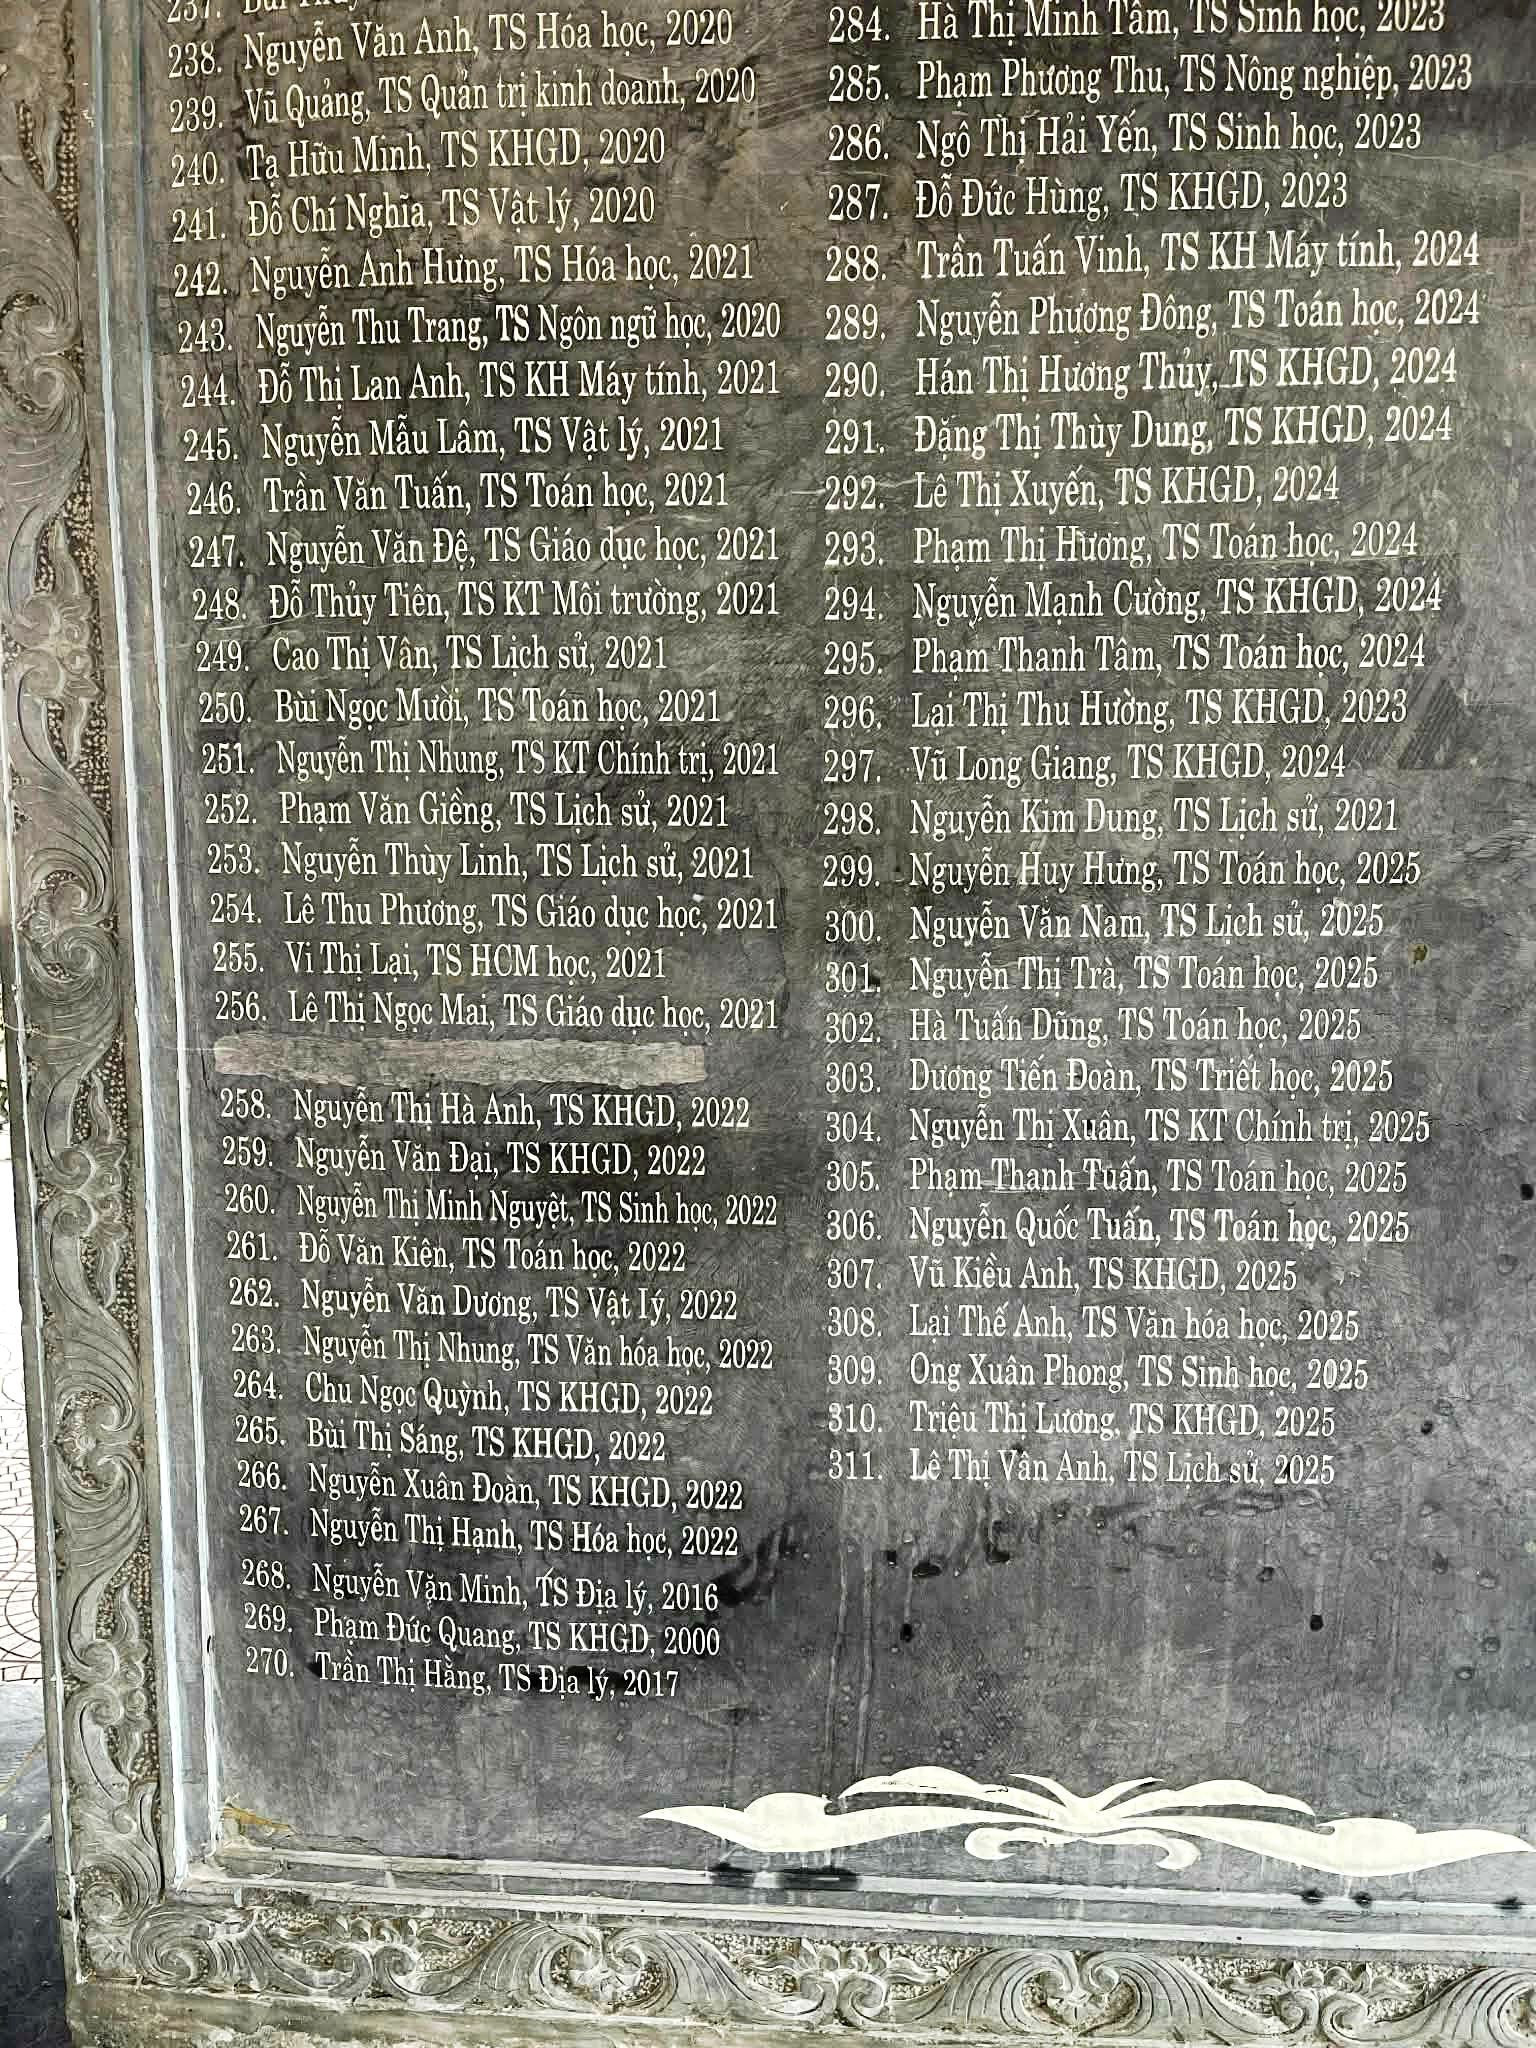 237. Bùi
238. Nguyễn Văn Anh, TS Hóa học, 2020
239. Vũ Quảng, TS Quản trị kinh doanh, 2020
240. Tạ Hữu Minh, TS KHGD, 2020
241. Đỗ Chí Nghĩa, TS Vật lý, 2020
242. Nguyễn Anh Hưng, TS Hóa học, 2021
243. Nguyễn Thu Trang, TS Ngôn ngữ học, 2020
244. Đỗ Thị Lan Anh, TS KH Máy tính, 2021
245. Nguyễn Mẫu Lâm, TS Vật lý, 2021
246. Trần Văn Tuấn, TS Toán học, 2021
247. Nguyễn Văn Đệ, TS Giáo dục học, 2021
248. Đỗ Thủy Tiên, TS KT Môi trường, 2021
249. Cao Thị Vân, TS Lịch sử, 2021
250. Bùi Ngọc Mười, TS Toán học, 2021
251. Nguyễn Thị Nhung, TS KT Chính trị, 2021
252. Phạm Văn Giềng, TS Lịch sử, 2021
253. Nguyễn Thùy Linh, TS Lịch sử, 2021
254. Lê Thu Phương, TS Giáo dục học, 2021
255. Vi Thị Lại, TS HCM học, 2021
256. Lê Thị Ngọc Mai, TS Giáo dục học, 2021
258. Nguyễn Thị Hà Anh, TS KHGD, 2022
259. Nguyễn Văn Đại, TS KHGD, 2022
260. Nguyễn Thị Minh Nguyệt, TS Sinh học, 2022
261. Đỗ Văn Kiên, TS Toán học, 2022
262. Nguyễn Văn Dương, TS Vật Iý, 2022
263. Nguyễn Thị Nhung, TS Văn hóa học, 2022
264. Chu Ngọc Quỳnh, TS KHGD, 2022
265. Bùi Thị Sáng, TS KHGD, 2022
266. Nguyễn Xuân Đoàn, TS KHGD, 2022
267. Nguyễn Thị Hạnh, TS Hóa học, 2022
268. Nguyễn Văn Minh, TS Địa lý, 2016
269. Phạm Đức Quang, TS KHGD, 2000
270. Trần Thị Hằng, TS Địa lý, 2017
284. Hà Thị Minh Tâm, TS Sinh học, 2023
285. Phạm Phương Thu, TS Nông nghiệp, 2023
286. Ngô Thị Hải Yến, TS Sinh học, 2023
287. Đỗ Đức Hùng, TS KHGD, 2023
288. Trần Tuấn Vinh, TS KH Máy tính, 2024
289. Nguyễn Phương Đông, TS Toán học, 2024
290. Hán Thị Hương Thủy, TS KHGD, 2024
291. Đặng Thị Thùy Dung, TS KHGD, 2024
292. Lê Thị Xuyến, TS KHGD, 2024
293. Phạm Thị Hương, TS Toán học, 2024
294. Nguyễn Mạnh Cường, TS KHGD, 2024
295. Phạm Thanh Tâm, TS Toán học, 2024
296. Lại Thị Thu Hường, TS KHGD, 2023
297. Vũ Long Giang, TS KHGD, 2024
298. Nguyễn Kim Dung, TS Lịch sử, 2021
299. Nguyễn Huy Hưng, TS Toán học, 2025
300. Nguyễn Văn Nam, TS Lịch sử, 2025
301. Nguyễn Thị Trà, TS Toán học, 2025
302. Hà Tuấn Dũng, TS Toán học, 2025
303. Dương Tiến Đoàn, TS Triết học, 2025
304. Nguyễn Thị Xuân, TS KT Chính trị, 2025
305. Phạm Thanh Tuấn, TS Toán học, 2025
306. Nguyễn Quốc Tuấn, TS Toán học, 2025
307. Vũ Kiều Anh, TS KHGD, 2025
308. Lại Thế Anh, TS Văn hóa học, 2025
309. Ong Xuân Phong, TS Sinh học, 2025
310. Triệu Thị Lương, TS KHGD, 2025
311. Lê Thị Vân Anh, TS Lịch sử, 2025